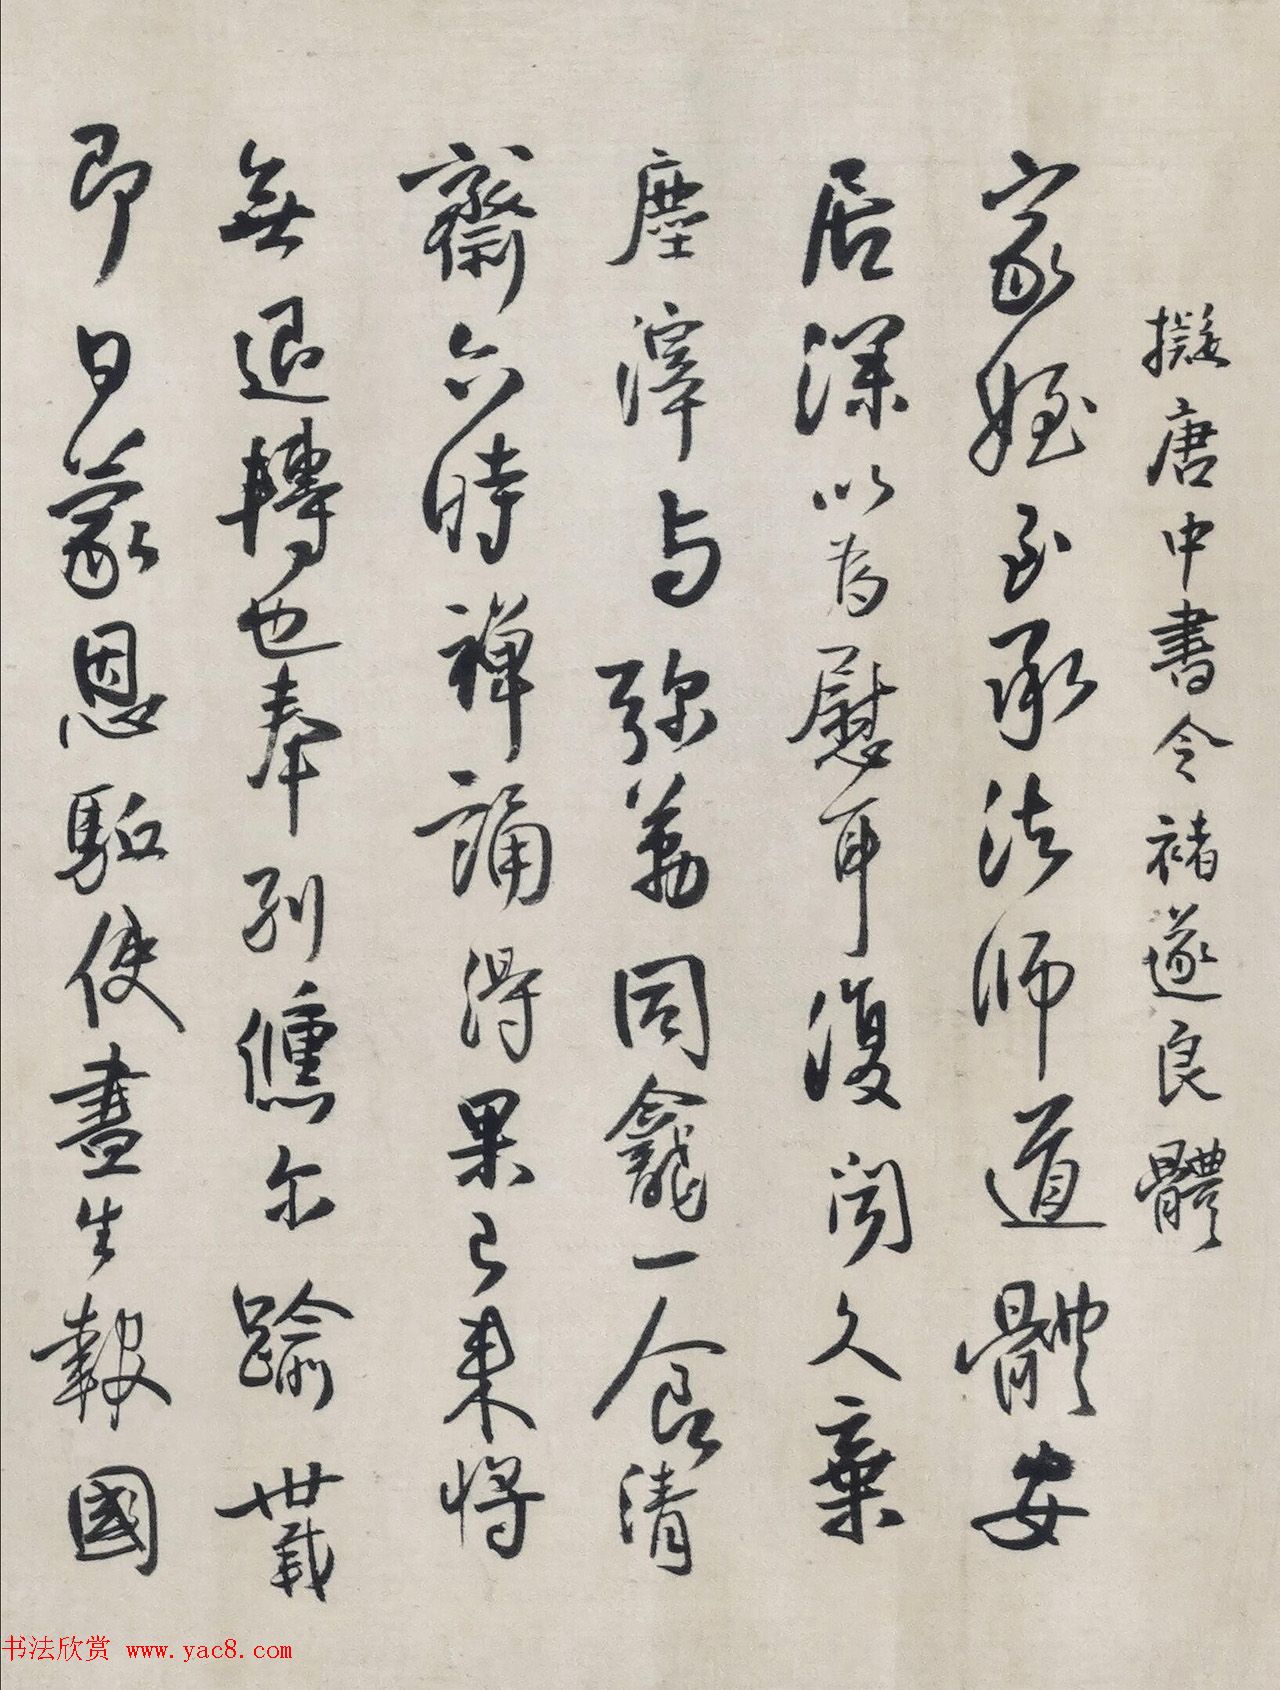 擬唐中書令褚遂良體
家姪至承法师道體安
居深以為慰耳復闻久棄
塵滓与弥勒同龕一食清
齋六時禅誦得果已来将
無退轉也奉别儵尔踰卅載
即日蒙恩駈使盡生報國
书法欣赏 www.yac8.com